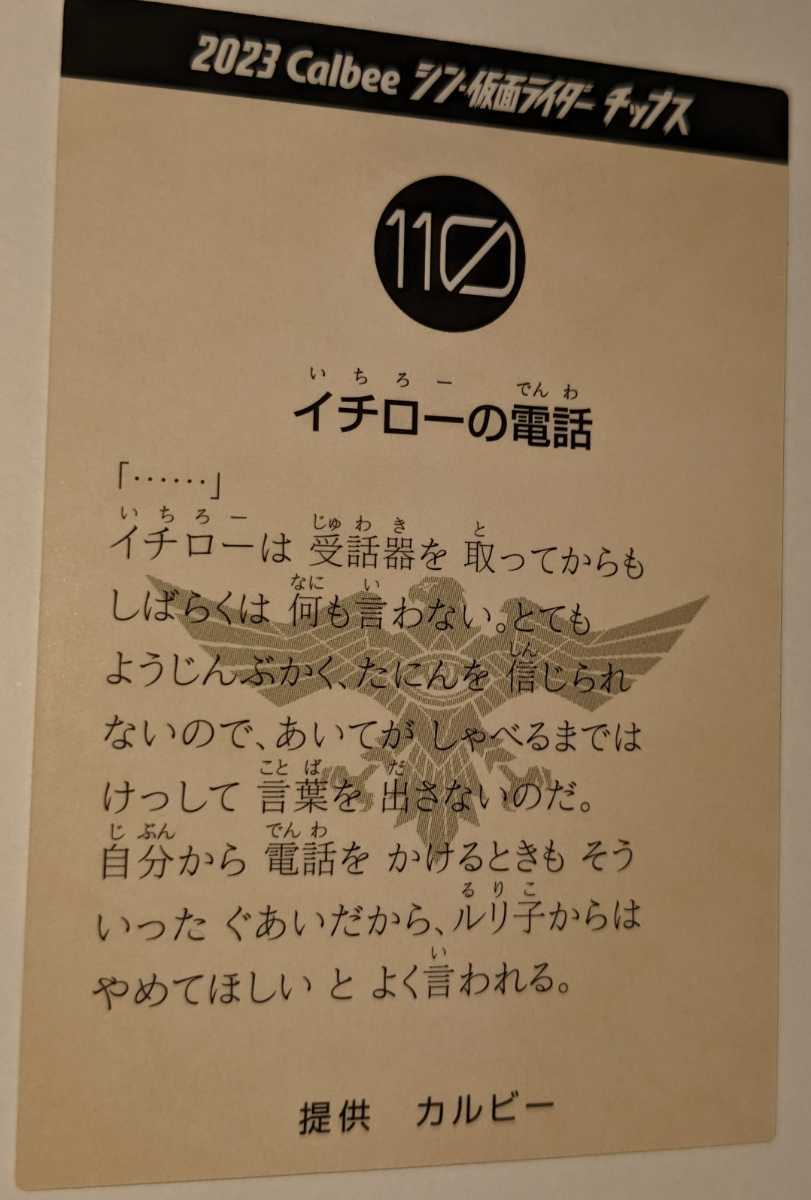 2023 Calbee シン・仮面ライダー チップス
110
いちろー でんわ
イチローの電話
「……」
いちろー じゅわき と
イチローは 受話器を 取ってからも
なに い
しばらくは 何も言わない。とても
しん
ようじんぶかく、たにんを 信じられ
ないので、あいてが しゃべるまでは
ことば だ
けっして 言葉を 出さないのだ。
じぶん でんわ
自分から 電話を かけるときも そう
るりこ
いった ぐあいだから、ルリ子からは
い
やめてほしい と よく言われる。
提供 カルビー